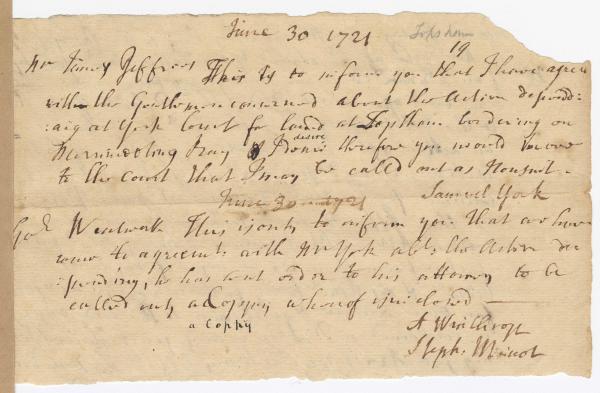 June 30 1721 Topsham
19
Mr Jeffries This Is to inform you that I have agree
with the Gentlemen concerned about the Action depend=
=ing at York Court for land at Topsham bordering on
Bay desire therefore you would move
to the Court that I may be called out as Nonsuit -
Samuel York
June 30 1721
Wentworth This is only to inform you that we have
come to agreemt with Mr York abt the Action de=
=pending, he has sent order to his attorney to be
called out, a Coppy whereof is inclosed —
a Coppy
A Winthrop
Steph: Minot